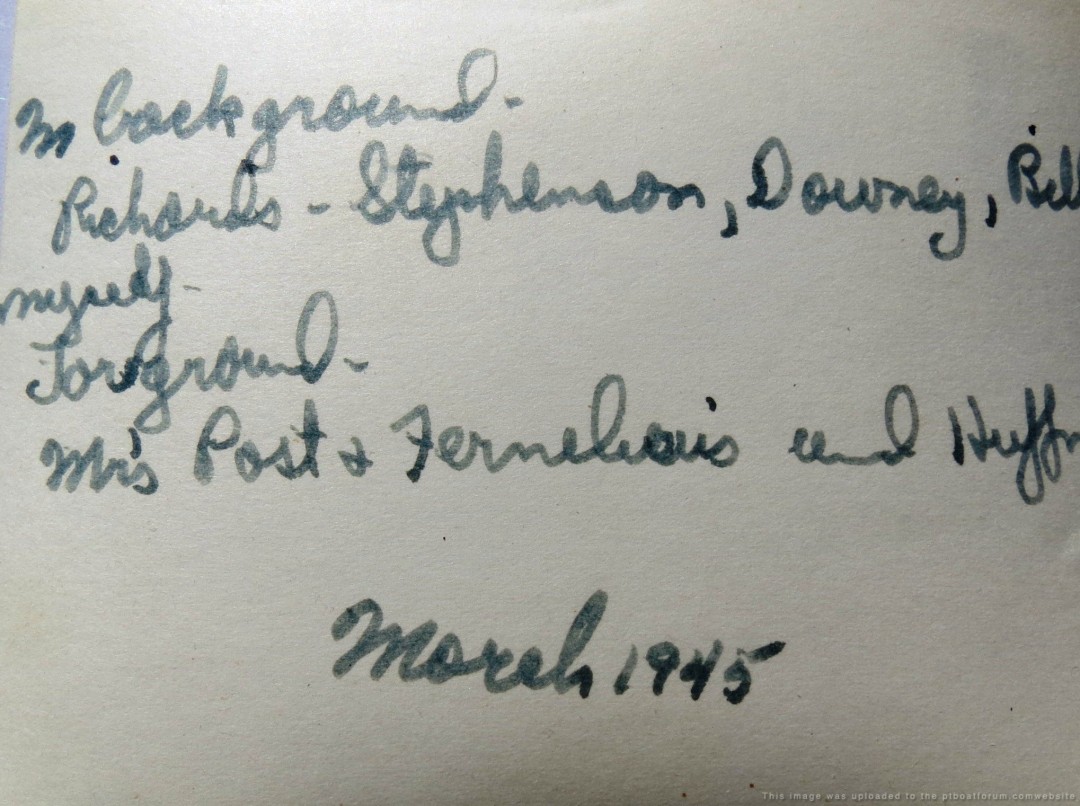 In background.
Richards - Stephenson, Downey, Bill
myself.
Forground.
Mr's Post & Fernelious and Huffm
March 1945
This image was uploaded to the ptboatforum.comwebsite